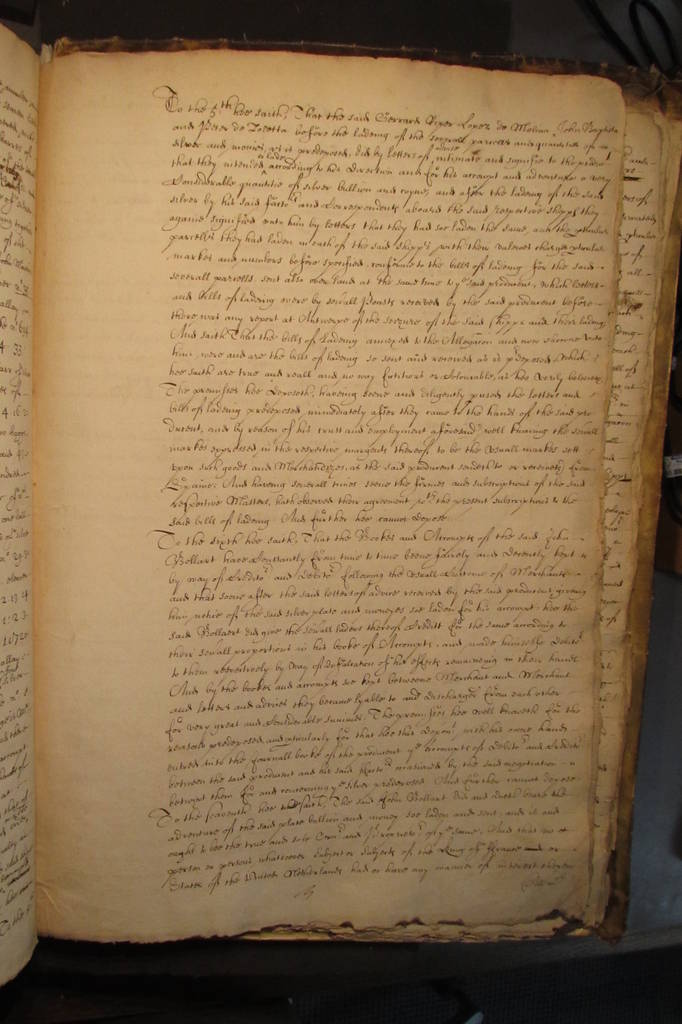 To the 5th hee saith, That the said Gerrard Viser Lopez de Molina, John Baptista
and Peter de Zoetta before the ladeing of the severall parcells and quantities of
silver and monies, as is predeposed, did by letters of advise intimate and signifie to the producent
that they intended to lade according to his direction and for his account and adventure a very
Considerable quantitie of silver bullion and coyne, and after the ladeing of the said
silver by his said factors and Correspondents aboard the said respective shipps they
againe signified unto him by letters that they had soe laden the same, and the perticular
parcells they had laden in each of the said shipps, with their values charge perticular
market and numbers before specified, conforme to the bills of ladeing for the said
severall parcells, sent also over land at the same time to ye said producent, which letters
and bills of ladeing were by severall Poasts received by the said producent before
there was any report at Antwerpe of the seizure of the said shipps and their ladeing
And saith That the bills of ladeing annexed to the Allegation and now showne unto
him, were and are the bills of ladeing so sent and received as is predeposed, which
hee saith are true and reall and no way fictitious or Colourable, as hee verily beleiveth
The premisses hee deposeth, haveing seene and diligently perused the letters and
bills of ladeing predeposed immediately after they came to the hands of the said pro
ducent, and by reason of his trust and employment aforesaid well knowing the severall
markes expressed in the respective margents thereof to be the usuall markes sett
upon such goods and Merchandizes, as the said producent sendeth to or receiveth from
Spaine. And having severall times seene the firmes and subscriptions of the said
respective Masters, hath observed their agreement with the present subscriptions to the
said bills of ladeing. And further hee cannot depose
To the sixth hee saith, That the Bookes and Accompts of the said John
Bollart have Constantly from time to time beene fairely and decently kept
by way of Creditor and Debitor following the usuall Custome of Merchants
and that soone after the said letters of advise received by the said producent giveing
him notice of the said silver plate and moneyes soe laden for his accompt hee the
said Bollaert did give the severall laders thereof Creditt for the same according to
their severall proportions in his booke of Accompts, and made himselfe Debitor
to them respectively by way of diffalcation of his effects remayneing in their hands
And by the bookes and accompts soe kept betweene Merchant and Merchant
and letters and advices they became lyable to and dischargeth from each other
for very great and Considerable summes. The premisses hee well knoweth for the
reasons predeposed, and perticularly for that hee this deponent with his owne hands
entred into the Journall booke of the producent ye accompts of Debitor and Creditor
between the said producent and his said factors occasioned by the said negotiation
betwixt them for and concerning ye silver predeposed And further cannot depose
To the seaventh hee saith, The said John Bollart did and doeth beare the
adventure of the said plate bullion and money soe laden and sent, and is and
ought to bee the true and sole Owner and Proprietor of ye same. And that no
person or persons whatsoever subject or subjects of the King of France or
States of the United Netherlands had or have any manner of interest therein